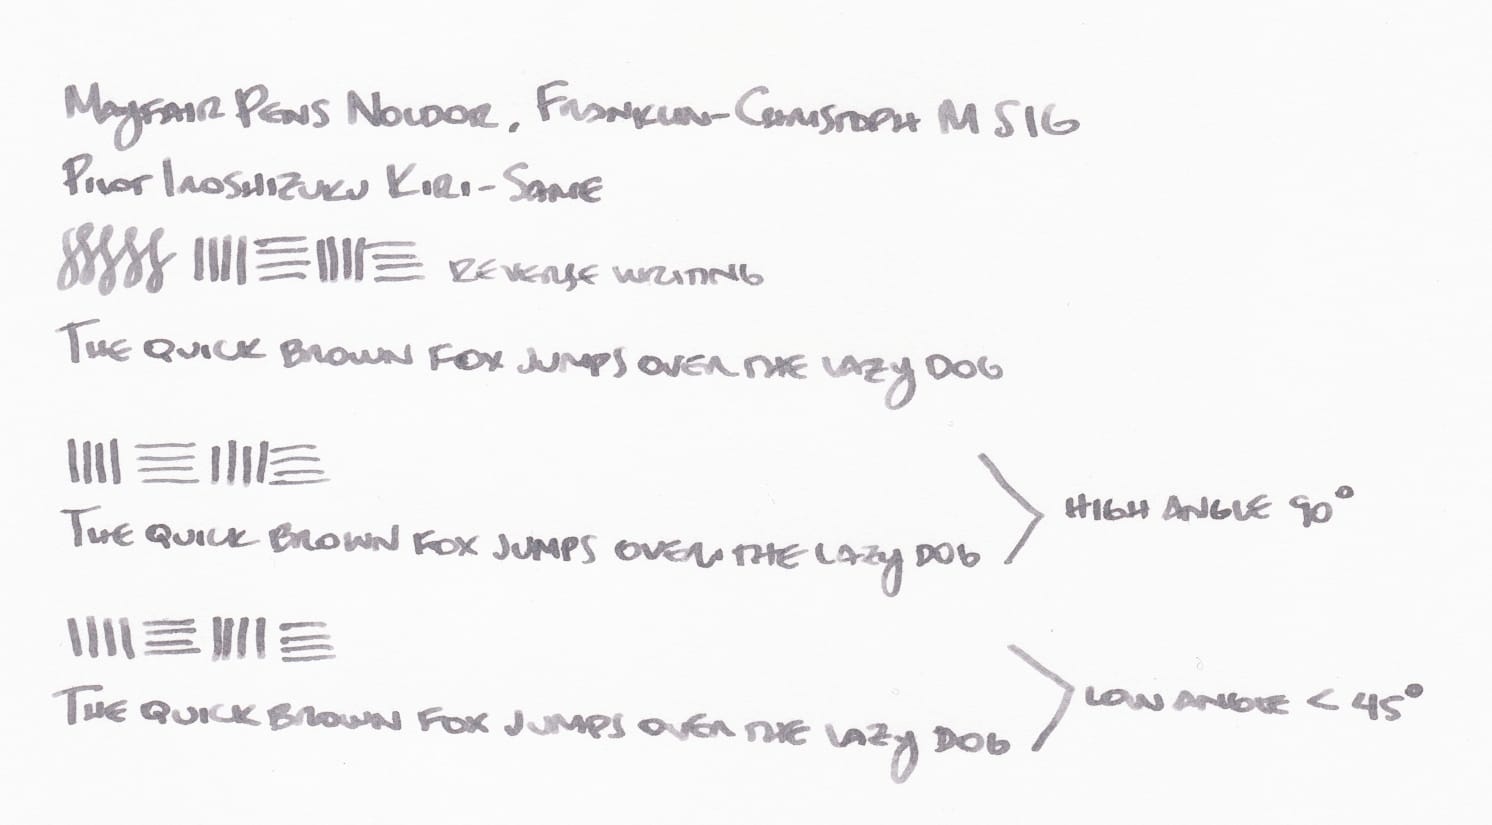 Mayfair Pens Noldor, Franklin-Christoph M SIG
Pilot Iroshizuku Kiri-Same
REVERSE WRITING
THE QUICK BROWN FOX JUMPS OVER THE LAZY DOG
THE QUICK BROWN FOX JUMPS OVER THE LAZY DOG
HIGH ANGLE 90°
THE QUICK BROWN FOX JUMPS OVER THE LAZY DOG
LOW ANGLE < 45°